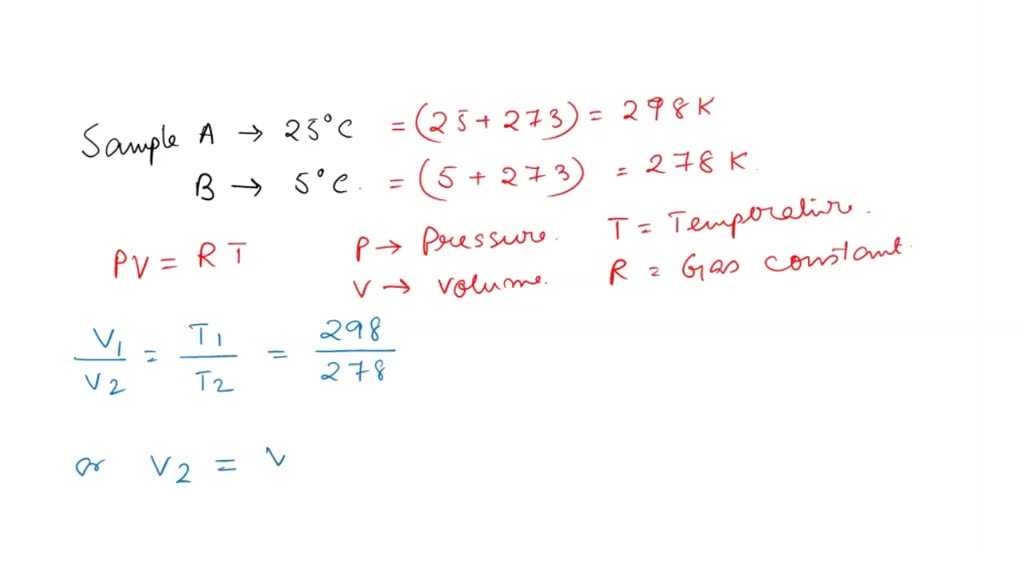 Sample A → 25°C = (25 + 273) = 298 K
B → 5°C. = (5 + 273) = 278 K.
PV = RT P → Pressure. T = Temperature.
V → Volume. R = Gas constant.
V1/V2 = T1/T2 = 298/278
or V2 = V